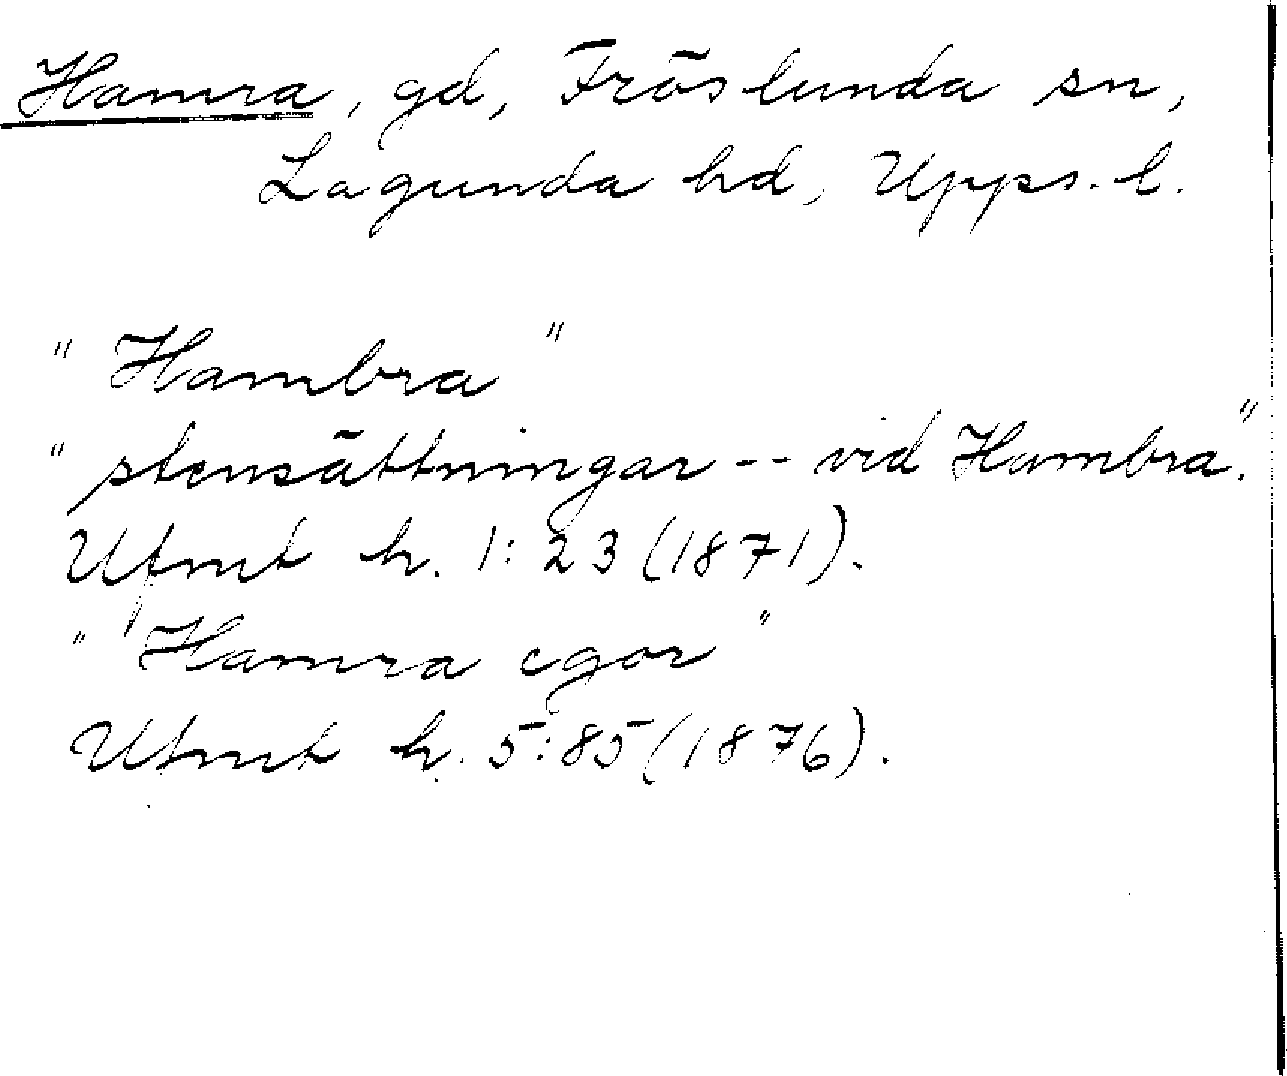 Hamra, gd, Fröslunda sn,
Lagunda hd, Upps. l.
"Hambra"
"stensättningar -- vid Hambra."
Ufmt h. 1:23 (1871).
"Hamra egor"
Ufmt h. 5:85 (1876).